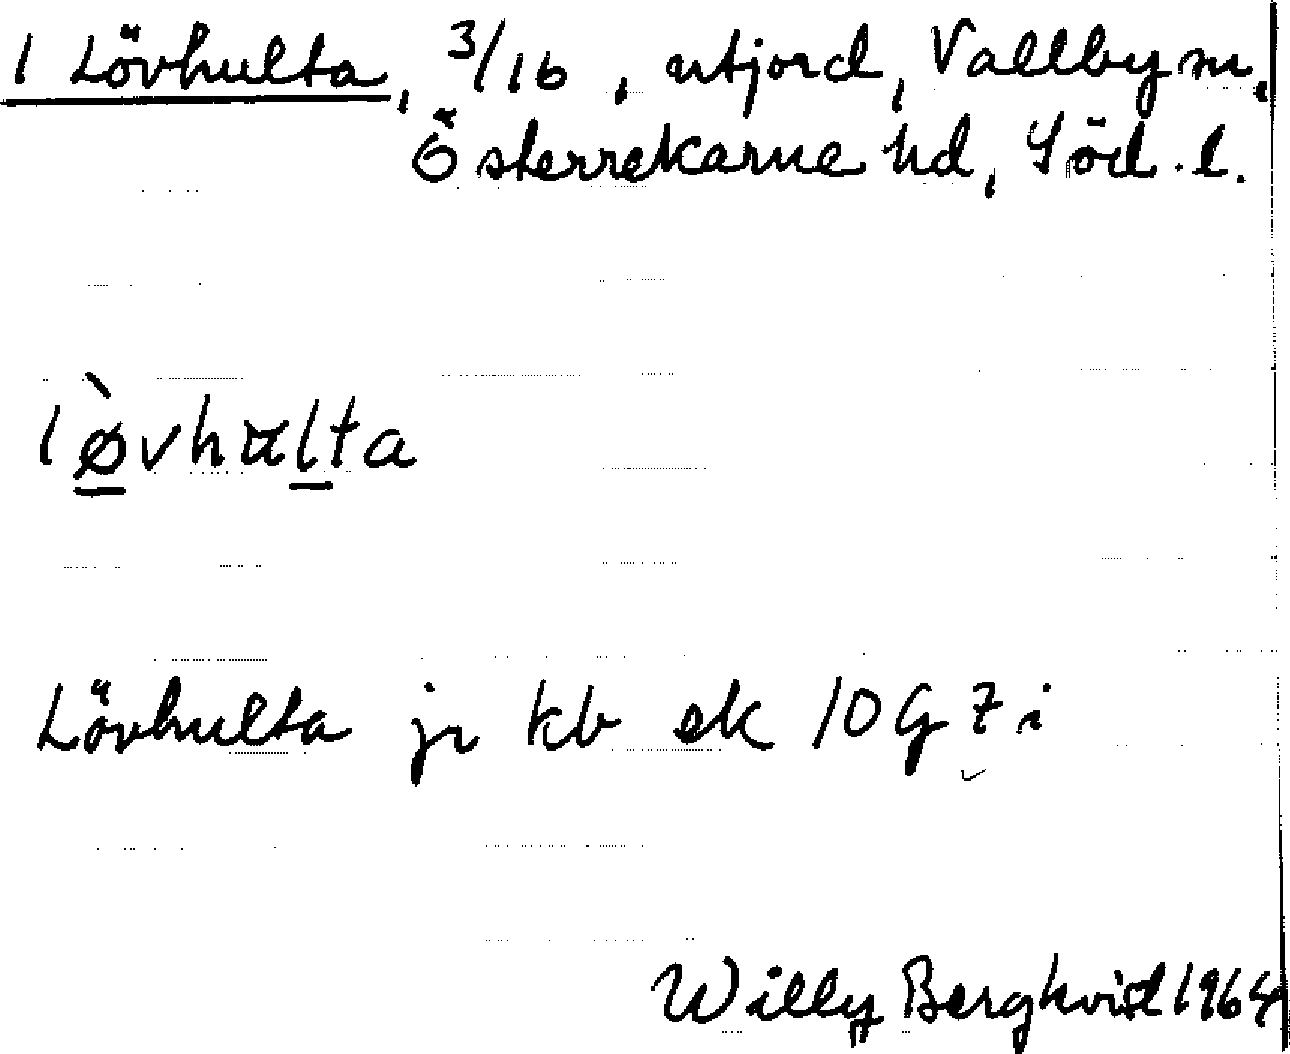 1 Lövhulta, 3/16, utjord, Vallby sn,
Österrekarne hd, Söd. l.
lø̀vhulta
Lövhulta jr kb ek 10G 7i
Willy Bergkvist 1964